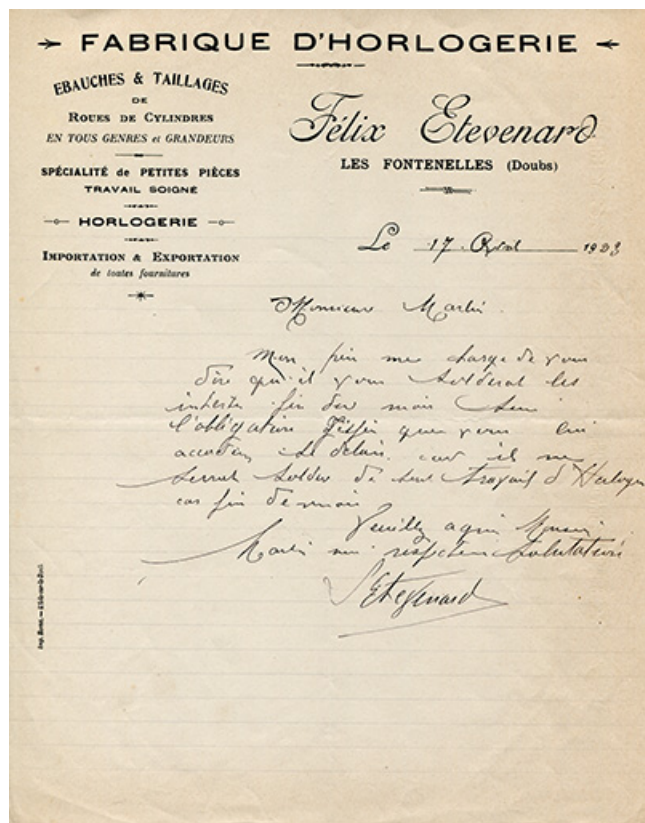 FABRIQUE D'HORLOGERIE
EBAUCHES & TAILLAGES
DE
ROUES DE CYLINDRES
EN TOUS GENRES et GRANDEURS
SPÉCIALITÉ de PETITES PIÈCES
TRAVAIL SOIGNÉ
HORLOGERIE
IMPORTATION & EXPORTATION
de toutes fournitures
Félix Etevenard
LES FONTENELLES (Doubs)
Le 17 Avril 1923
Monsieur Martin
Mon me charge de vous
dire qu'il vous solderat les
fin du mois
l'obligation que vous lui
accordez délais car il ne
serrat solder de travail d'
fin de mois
Veuillez agréer
salutations
Etevenard